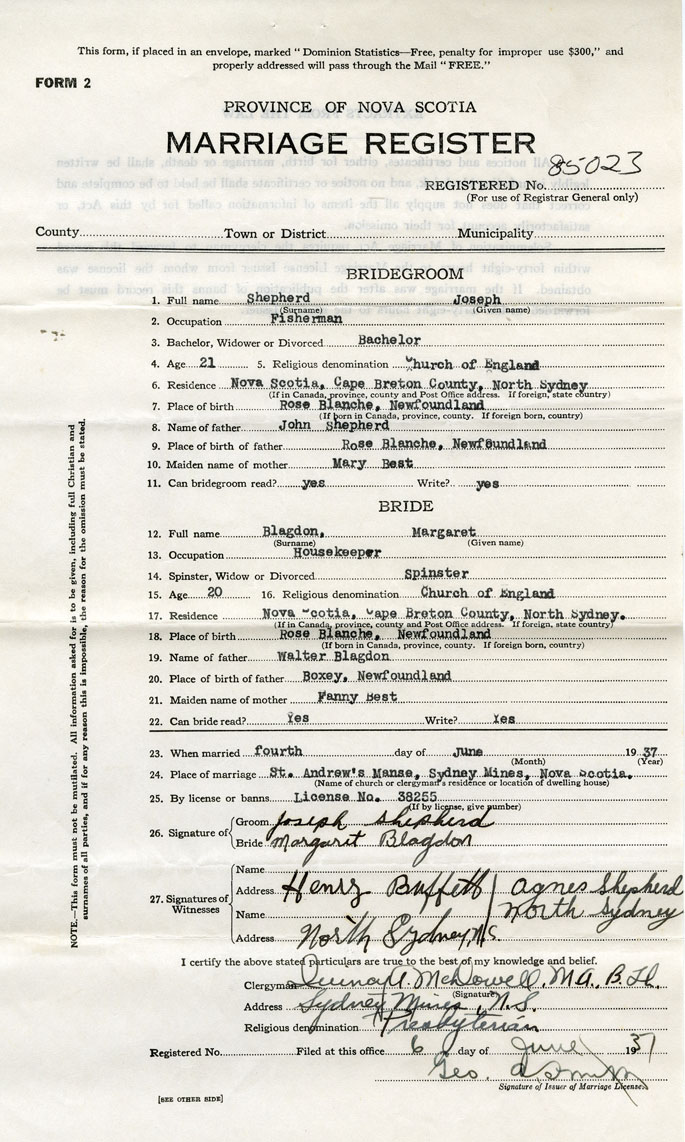 This form, if placed in an envelope, marked "Dominion Statistics—Free, penalty for improper use $300," and
properly addressed will pass through the Mail "FREE."
FORM 2
PROVINCE OF NOVA SCOTIA
MARRIAGE REGISTER
REGISTERED No. 85023
(For use of Registrar General only)
County Town or District Municipality
BRIDEGROOM
1. Full name Shepherd Joseph
(Surname) (Given name)
2. Occupation Fisherman
3. Bachelor, Widower or Divorced Bachelor
4. Age 21 5. Religious denomination Church of England
6. Residence Nova Scotia, Cape Breton County, North Sydney
(If in Canada, province, county and Post Office address. If foreign, state country)
7. Place of birth Rose Blanche, Newfoundland
(If born in Canada, province, county. If foreign born, country)
8. Name of father John Shepherd
9. Place of birth of father Rose Blanche, Newfoundland
10. Maiden name of mother Mary Best
11. Can bridegroom read? yes Write? yes
BRIDE
12. Full name Blagdon, Margaret
(Surname) (Given name)
13. Occupation Housekeeper
14. Spinster, Widow or Divorced Spinster
15. Age 20 16. Religious denomination Church of England
17. Residence Nova Scotia, Cape Breton County, North Sydney.
(If in Canada, province, county and Post Office address. If foreign, state country)
18. Place of birth Rose Blanche, Newfoundland
(If born in Canada, province, county. If foreign born, country)
19. Name of father Walter Blagdon
20. Place of birth of father Boxey, Newfoundland
21. Maiden name of mother Fanny Best
22. Can bride read? Yes Write? Yes
23. When married fourth day of June 1937
(Month) (Year)
24. Place of marriage St. Andrew's Manse, Sydney Mines, Nova Scotia.
(Name of church or clergyman's residence or location of dwelling house)
25. By license or banns License No. 38255
(If by license, give number)
26. Signature of
Groom Joseph Shepherd
Bride Margaret Blagdon
27. Signatures of Witnesses
Name
Address Henry Buffett Agnes Shepherd
Name North Sydney
Address North Sydney, N.S.
I certify the above stated particulars are true to the best of my knowledge and belief.
Clergyman A. McDowell, M.A., B.
(Signature)
Address Sydney Mines, N.S.
Religious denomination Presbyterian
Registered No. Filed at this office 6 day of June 1937
Geo.
Signature of Issuer of Marriage Licenses
[SEE OTHER SIDE]
NOTE.—This form must not be mutilated. All information asked for is to be given, including full Christian and
surnames of all parties, and if for any reason this is impossible, the reason for the omission must be stated.